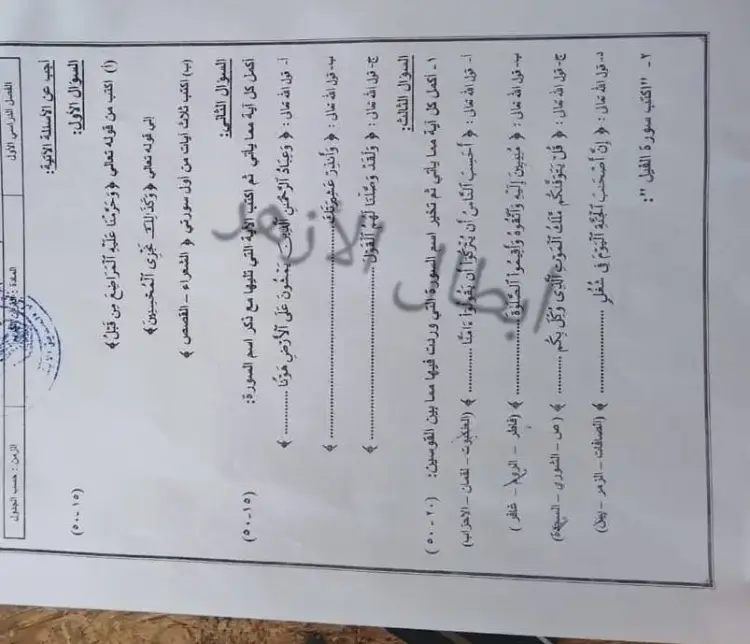 الفصل الدراسي الأول
المادة : القرآن الكريم
الزمن : حسب الجدول
أجب عن الأسئلة الآتية:
السؤال الأول:
(١٥ - ٥٠)
(أ) اكتب من قوله تعالى ﴿ وَحَرَّمْنَا عَلَيْهِ ٱلْمَرَاضِعَ مِن قَبْلُ ﴾
إلى قوله تعالى ﴿ وَكَذَٰلِكَ نَجْزِى ٱلْمُحْسِنِينَ ﴾
(ب) اكتب ثلاث آيات من أول سورتي ( الشعراء - القصص )
السؤال الثاني:
أكمل كل آية مما يأتي ثم اكتب الآية التي تليها مع ذكر اسم السورة: (١٥-٥٠)
أ- قول الله تعالى : ﴿ وَعِبَادُ ٱلرَّحْمَٰنِ ٱلَّذِينَ يَمْشُونَ عَلَى ٱلْأَرْضِ هَوْنًا ............ ﴾
ب- قول الله تعالى : ﴿ وَأَنذِرْ عَشِيرَتَكَ ............ ﴾
ج- قول الله تعالى : ﴿ وَلَقَدْ وَصَّلْنَا لَهُمُ ٱلْقَوْلَ ............ ﴾
السؤال الثالث:
١- أكمل كل آية مما يأتي ثم تخير اسم السورة التي وردت فيها مما بين القوسين: (٢٠ - ٥٠)
أ- قول الله تعالى : ﴿ أَحَسِبَ ٱلنَّاسُ أَن يُتْرَكُوٓا۟ أَن يَقُولُوٓا۟ ءَامَنَّا ............ ﴾ (العنكبوت - لقمان - الأحزاب)
ب- قول الله تعالى : ﴿ مُنِيبِينَ إِلَيْهِ وَٱتَّقُوهُ وَأَقِيمُوا۟ ٱلصَّلَوٰةَ ............ ﴾ (فاطر - الروم - غافر )
ج- قول الله تعالى : ﴿ قُلْ يَتَوَفَّىٰكُم مَّلَكُ ٱلْمَوْتِ ٱلَّذِى وُكِّلَ بِكُمْ ............ ﴾ ( ص - الشورى - السجدة)
د- قول الله تعالى : ﴿ إِنَّ أَصْحَٰبَ ٱلْجَنَّةِ ٱلْيَوْمَ فِى شُغُلٍ ............ ﴾ (الصافات - الزمر - يس)
٢- "اكتب سورة الفيل":
ابطال الازهر